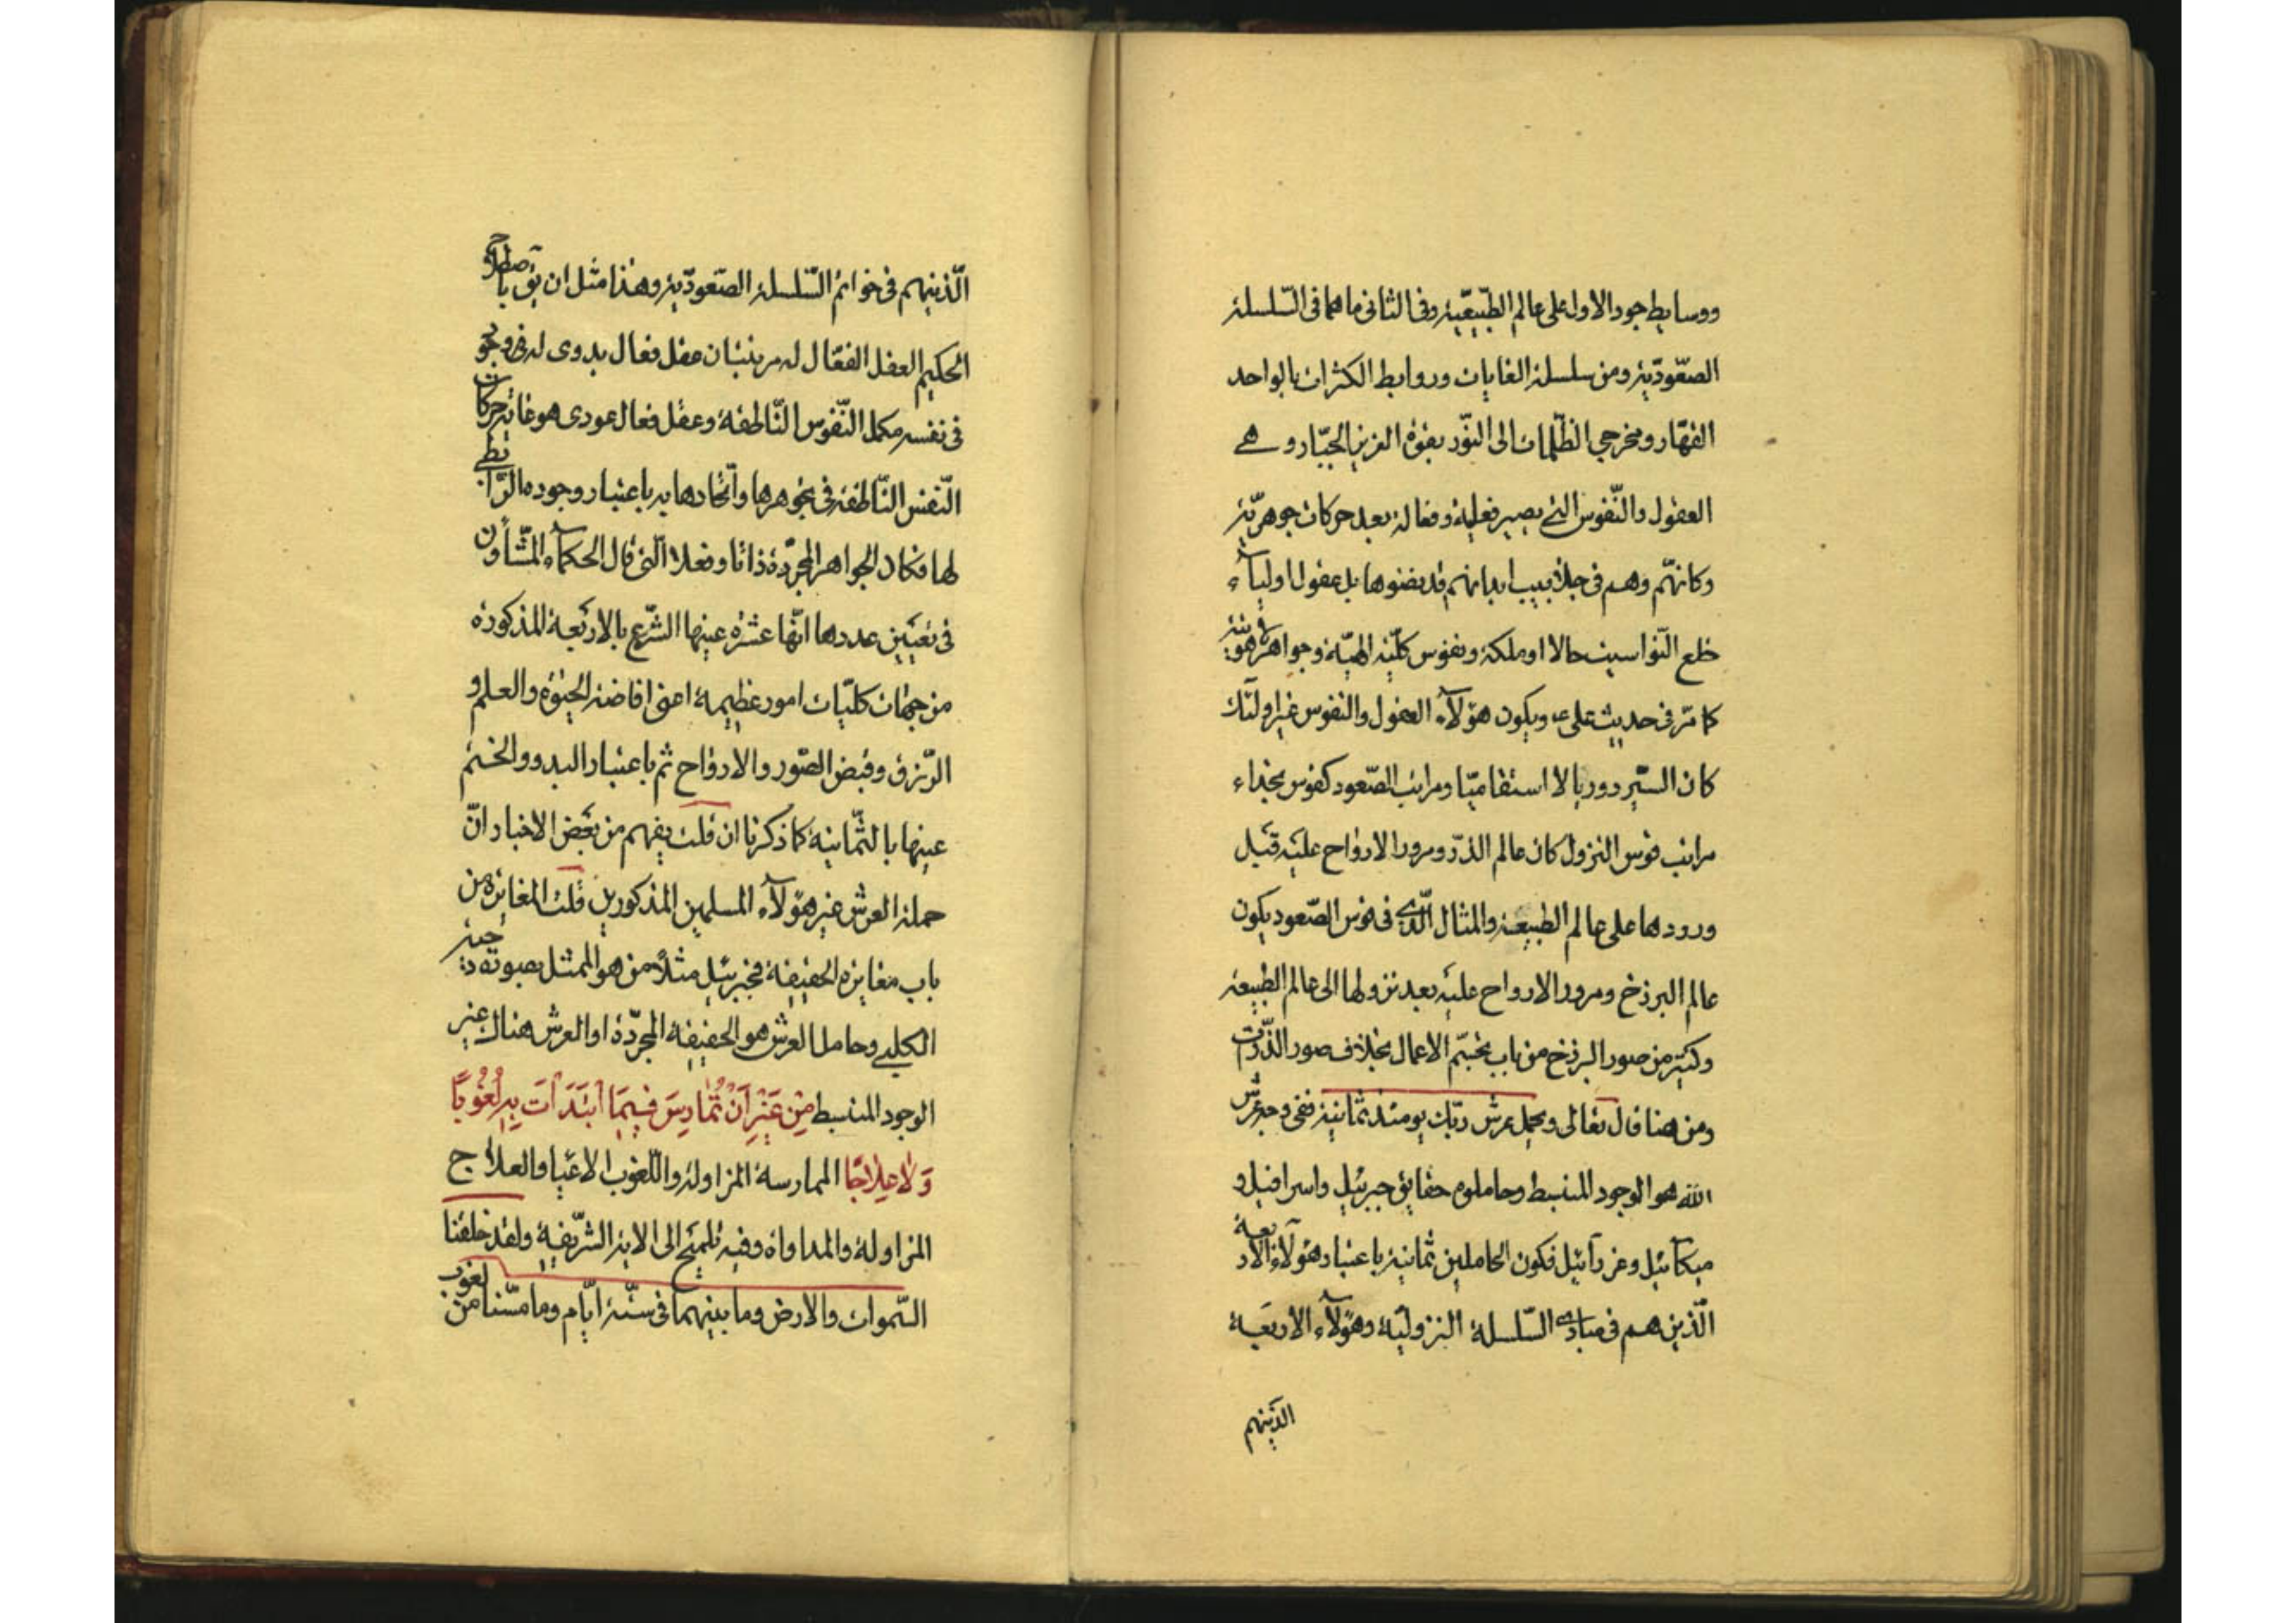 ووسايط جود الاول على عالم الطبيعية وفى الثانى ما هما فى السلسلة
الصعودية ومن سلسلة الغايات وروابط الكثرات بالواحد
القهار ومخرجى الظلمات الى النور بقوة العزيز الجبار وهى
العقول والنفوس التى يصير فعلية وفعالة بعد حركات جوهرية
وكانهم وهم فى جلابيب ابدانهم قد نفضوها بل عقول اولياء
خلع النواسيت حالا او ملكة ونفوس كلية الهية وجواهر لاهوتية
كما مر فى حديث على ع ويكون هؤلاء العقول والنفوس غير اولئك
كان السير دوريا لا استقاميا ومراتب الصعود كقوس بحذاء
مراتب قوس النزول كان عالم الذر ومرور الارواح عليه قبل
ورودها على عالم الطبيعة والمثال الذى فى قوس الصعود يكون
عالم البرزخ ومرور الارواح عليه بعد نزولها الى عالم الطبيعة
وكثير من صور البرزخ من باب تجسم الاعمال بخلاف صور الذرات
ومن هنا قال تعالى ويحمل عرش ربك يومئذ ثمانية ففى وجه عرش
الله هو الوجود المنبسط وحاملوه حقايق جبرئيل واسرافيل و
ميكائيل وعزرائيل فكون الحاملين ثمانية باعتبار هؤلاء الاربعة
الذين هم فى مبادى السلسلة النزولية وهؤلاء الاربعة
الذينهم
الذينهم فى خواتم السلسلة الصعودية وهذا مثل ان يق باصطلاح
الحكيم العقل الفعال له مرتبتان عقل فعال بدوى له وجود
فى نفسه مكمل النفوس الناطقة وعقل فعال عودى هو غاية حركات
النفس الناطقة فى تجوهرها واتحادها به باعتبار وجوده الرابطى
لها فكان الجواهر المجردة ذاتا وفعلا التى قال الحكماء المشاؤن
فى تعيين عددها انها عشرة عينها الشرع بالاربعة المذكورة
من جهات كليات امور عظيمة اعنى افاضة الحيوة والعلم و
الرزق وقبض الصور والارواح ثم باعتبار البدو والختم
عينها بالثمانية كما ذكرنا ان قلت يفهم من بعض الاخبار ان
حملة العرش غير هؤلاء المسلمين المذكورين قلت المغايرة من
باب مغايرة الحقيقة فجبرئيل مثلا من هو الممثل بصوته دحية
الكلبى وحامل العرش هو الحقيقة المجردة او العرش هناك غير
الوجود المنبسط مِنْ غَيْرِ اَنْ تُمارِسَ فيمَا ابْتَدَاْتَ بِهِ لُغُوبًا
وَلا عِلاجًا الممارسة المزاولة واللغوب الاعياء والعلاج
المزاولة والمداواة وفيه تلميح الى الاية الشريفة ولقد خلقنا
السموات والارض وما بينهما فى ستة ايام وما مسنا من لغوب